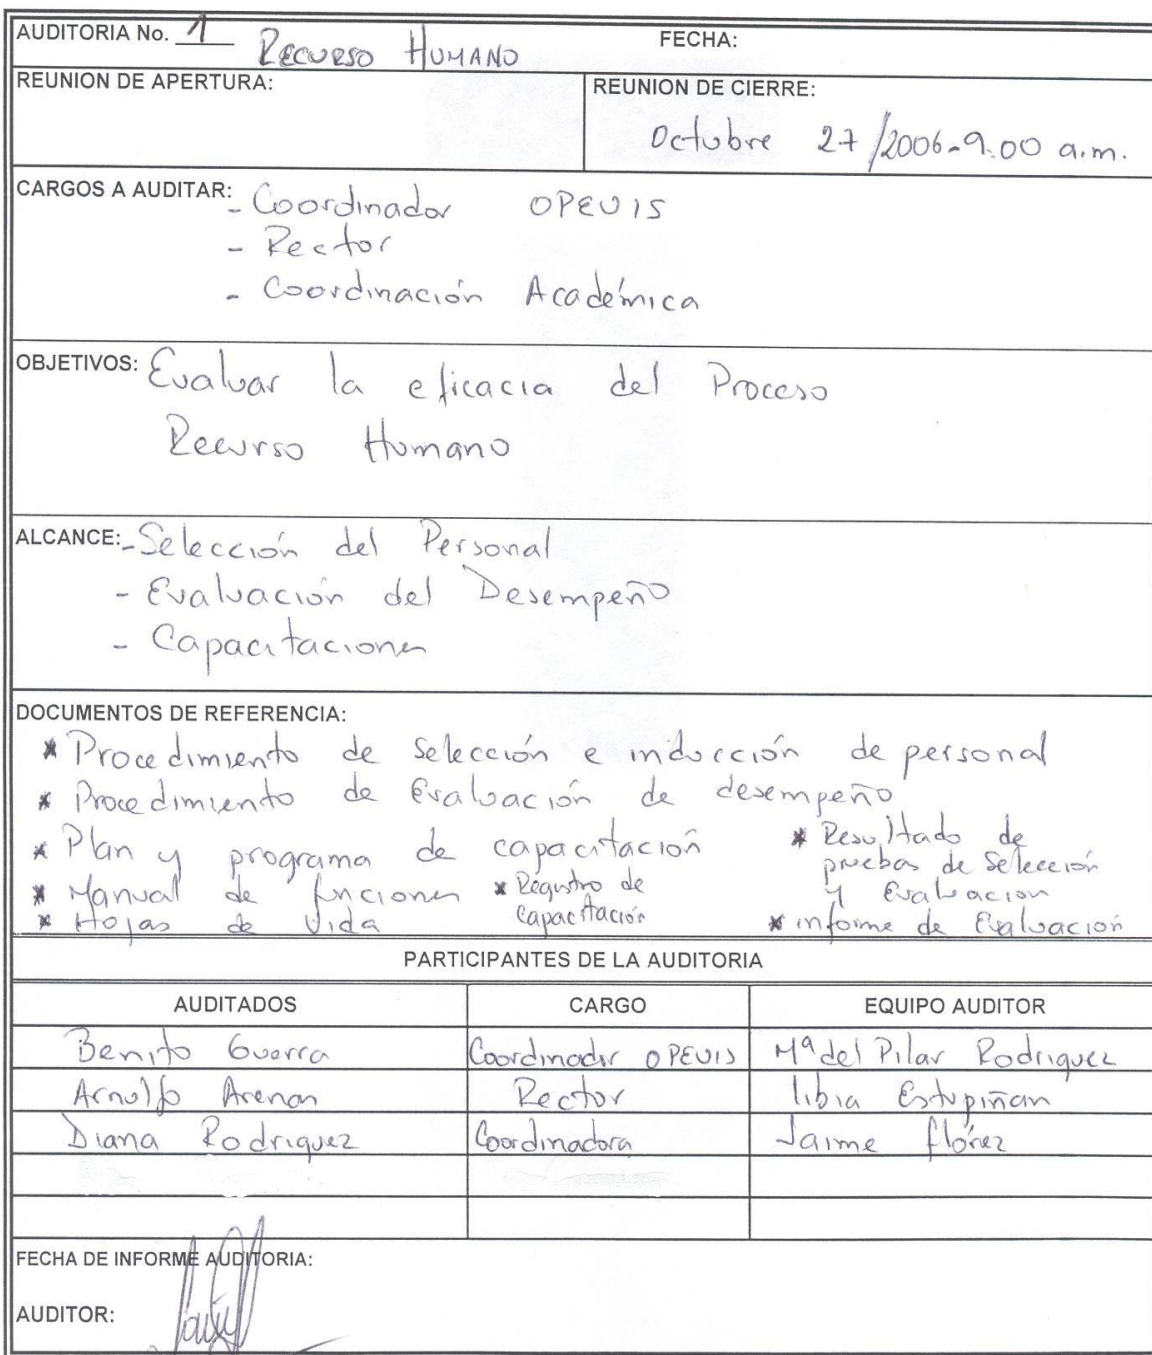 AUDITORIA No. 1 RECURSO HUMANO FECHA:
REUNION DE APERTURA: REUNION DE CIERRE:
Octubre 27/2006-9:00 a.m.
CARGOS A AUDITAR: - Coordinador OPEUIS
- Rector
- Coordinación Académica
OBJETIVOS: Evaluar la eficacia del Proceso
Recurso Humano
ALCANCE: - Selección del Personal
- Evaluación del Desempeño
- Capacitaciones
DOCUMENTOS DE REFERENCIA:
* Procedimiento de Selección e inducción de personal
* Procedimiento de Evaluación de desempeño
* Plan y programa de capacitación
* Manual de funciones
* Hojas de Vida
* Registro de
Capacitación
* Resultado de
pruebas de Selección
y Evaluación
* informe de Evaluación
PARTICIPANTES DE LA AUDITORIA
AUDITADOS CARGO EQUIPO AUDITOR
Benito Guerra Coordinador OPEUIS Mª del Pilar Rodriguez
Arnulfo Arenas Rector libia Estupiñan
Diana Rodriguez Coordinadora Jaime flórez
FECHA DE INFORME AUDITORIA:
AUDITOR: